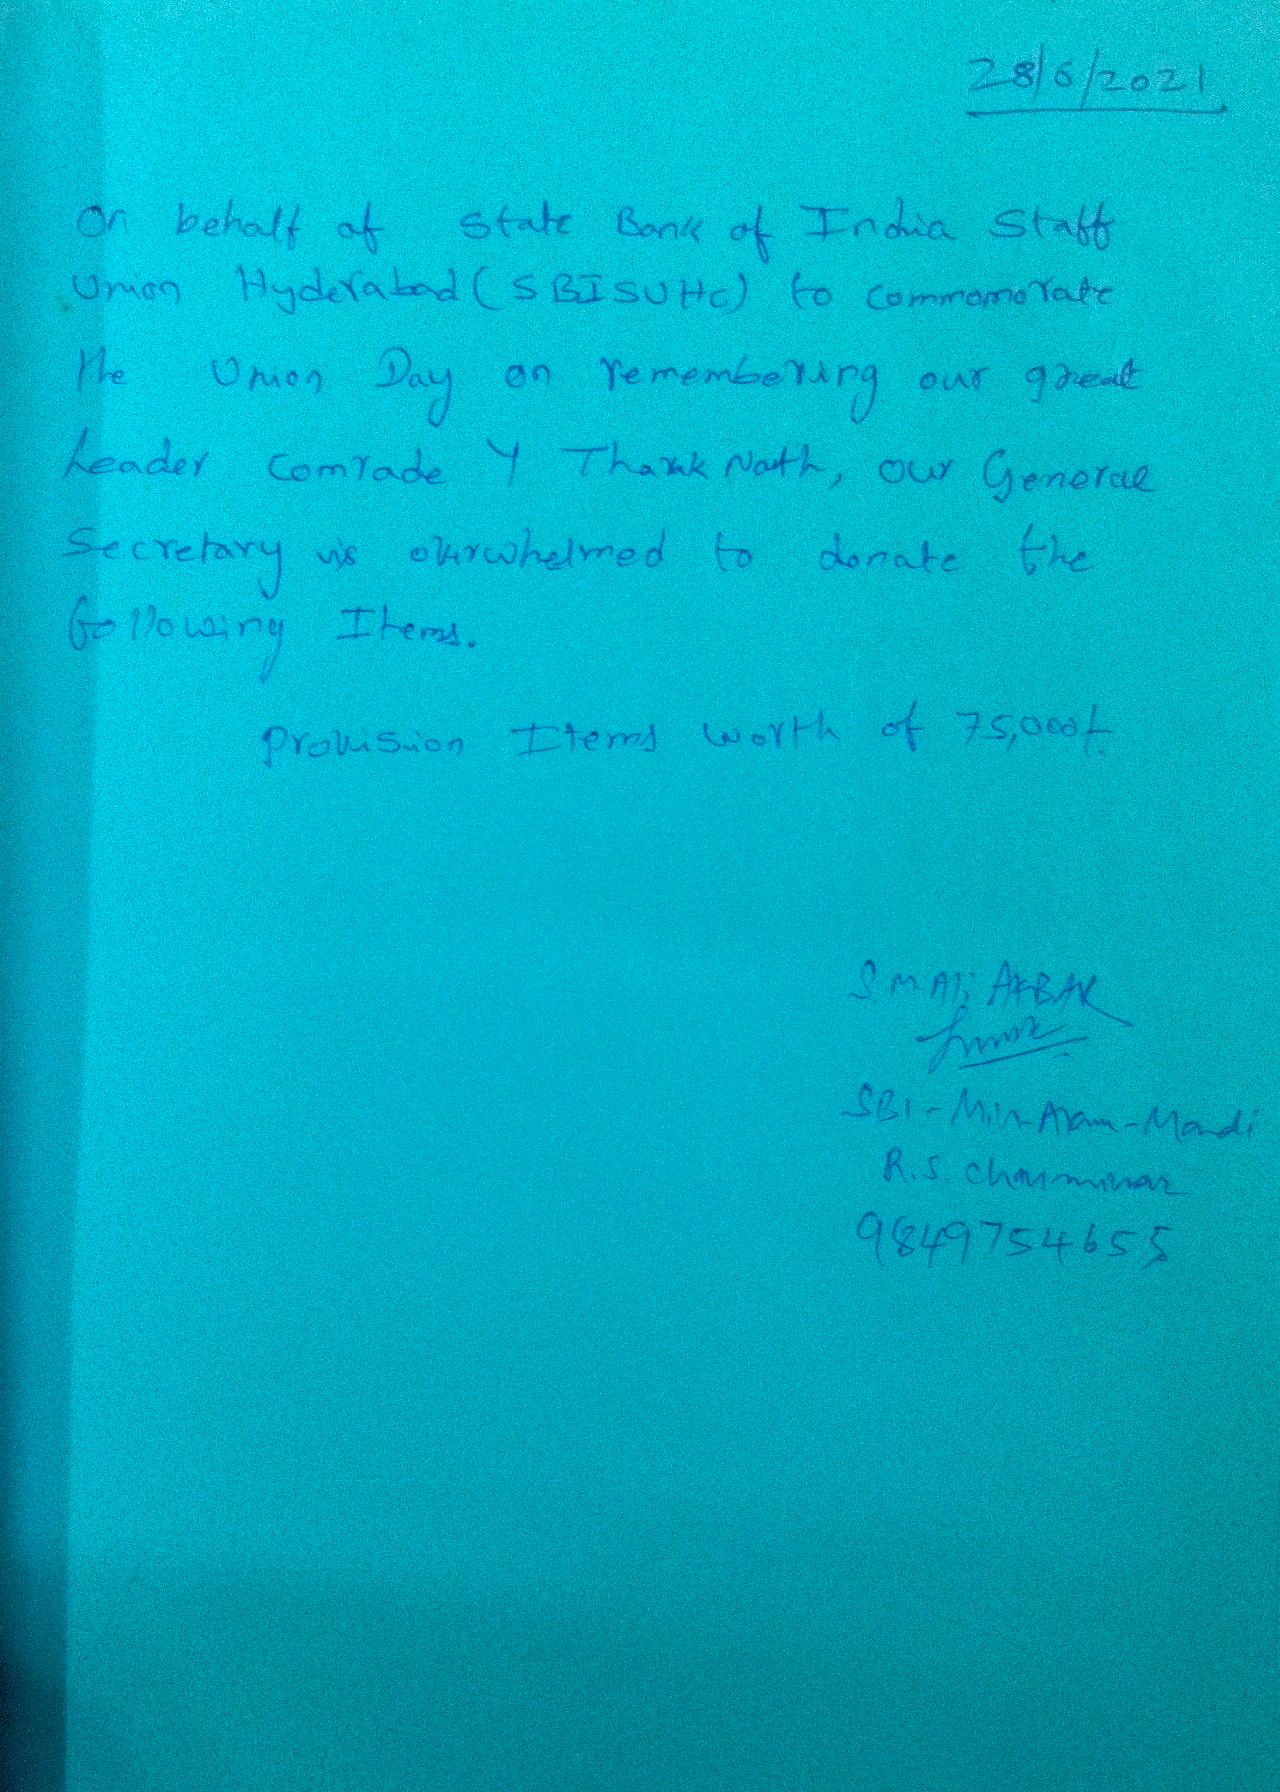 28/6/2021
On behalf of State Bank of India Staff
Union Hyderabad (SBISUHC) to commomorate
the Union Day on remembering our great
Leader Comrade Y Tharak Nath, our General
Secretary is overwhelmed to donate the
following Items.
Provision Items worth of 75,000/-
S.M Ali AKBAR
SBI - Mir-Alam-Mandi
R.S. Charminar
9849754655